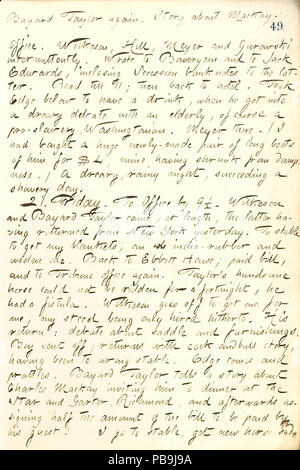 Bayard Taylor again. Story about Mackay.
49
Office. Wilkeson, Hill, Meyer and Gurowski
intermittently. Wrote to Boweryem and to Jack
Edwards, inclosing Secession banknotes to the lat-
ter. Read till 11; then back to hotel. Took
Edge below to have a drink, when he got into
a dreary debate with an elderly, of course a
pro-slavery Washingtonian. Meyer there. I
had bought a huge newly-made pair of long boots
of him for $4, mine having shrunk from damp-
ness. A dreary, rainy night, succeeding a
showery day.
21. Friday. To Office by 9½. Wilkeson
and Bayard Taylor came, at length, the latter ha-
ving returned from New York yesterday. To stable
to get my blankets, an india-rubber and
woolen do. Back to Ebbitt House; paid bill,
and to Tribune office again. Taylor's handsome
horse could not be ridden for a fortnight, he
had a fistula. Wilkeson goes off to get one for
me, my steed being only hired hitherto. His
return: debate about saddle and furnishings.
Boy sent off; returns with cock and bull story
having been to wrong stable. Edge comes and
prattles. Bayard Taylor tells a story about
Charles Mackay inviting him to dinner at the
Star and Garter Richmond and afterwards as-
signing half the amount of the bill to be paid by
his guest! I go to stable, get new horse
alamy
Image ID: PB9J9A
www.alamy.com